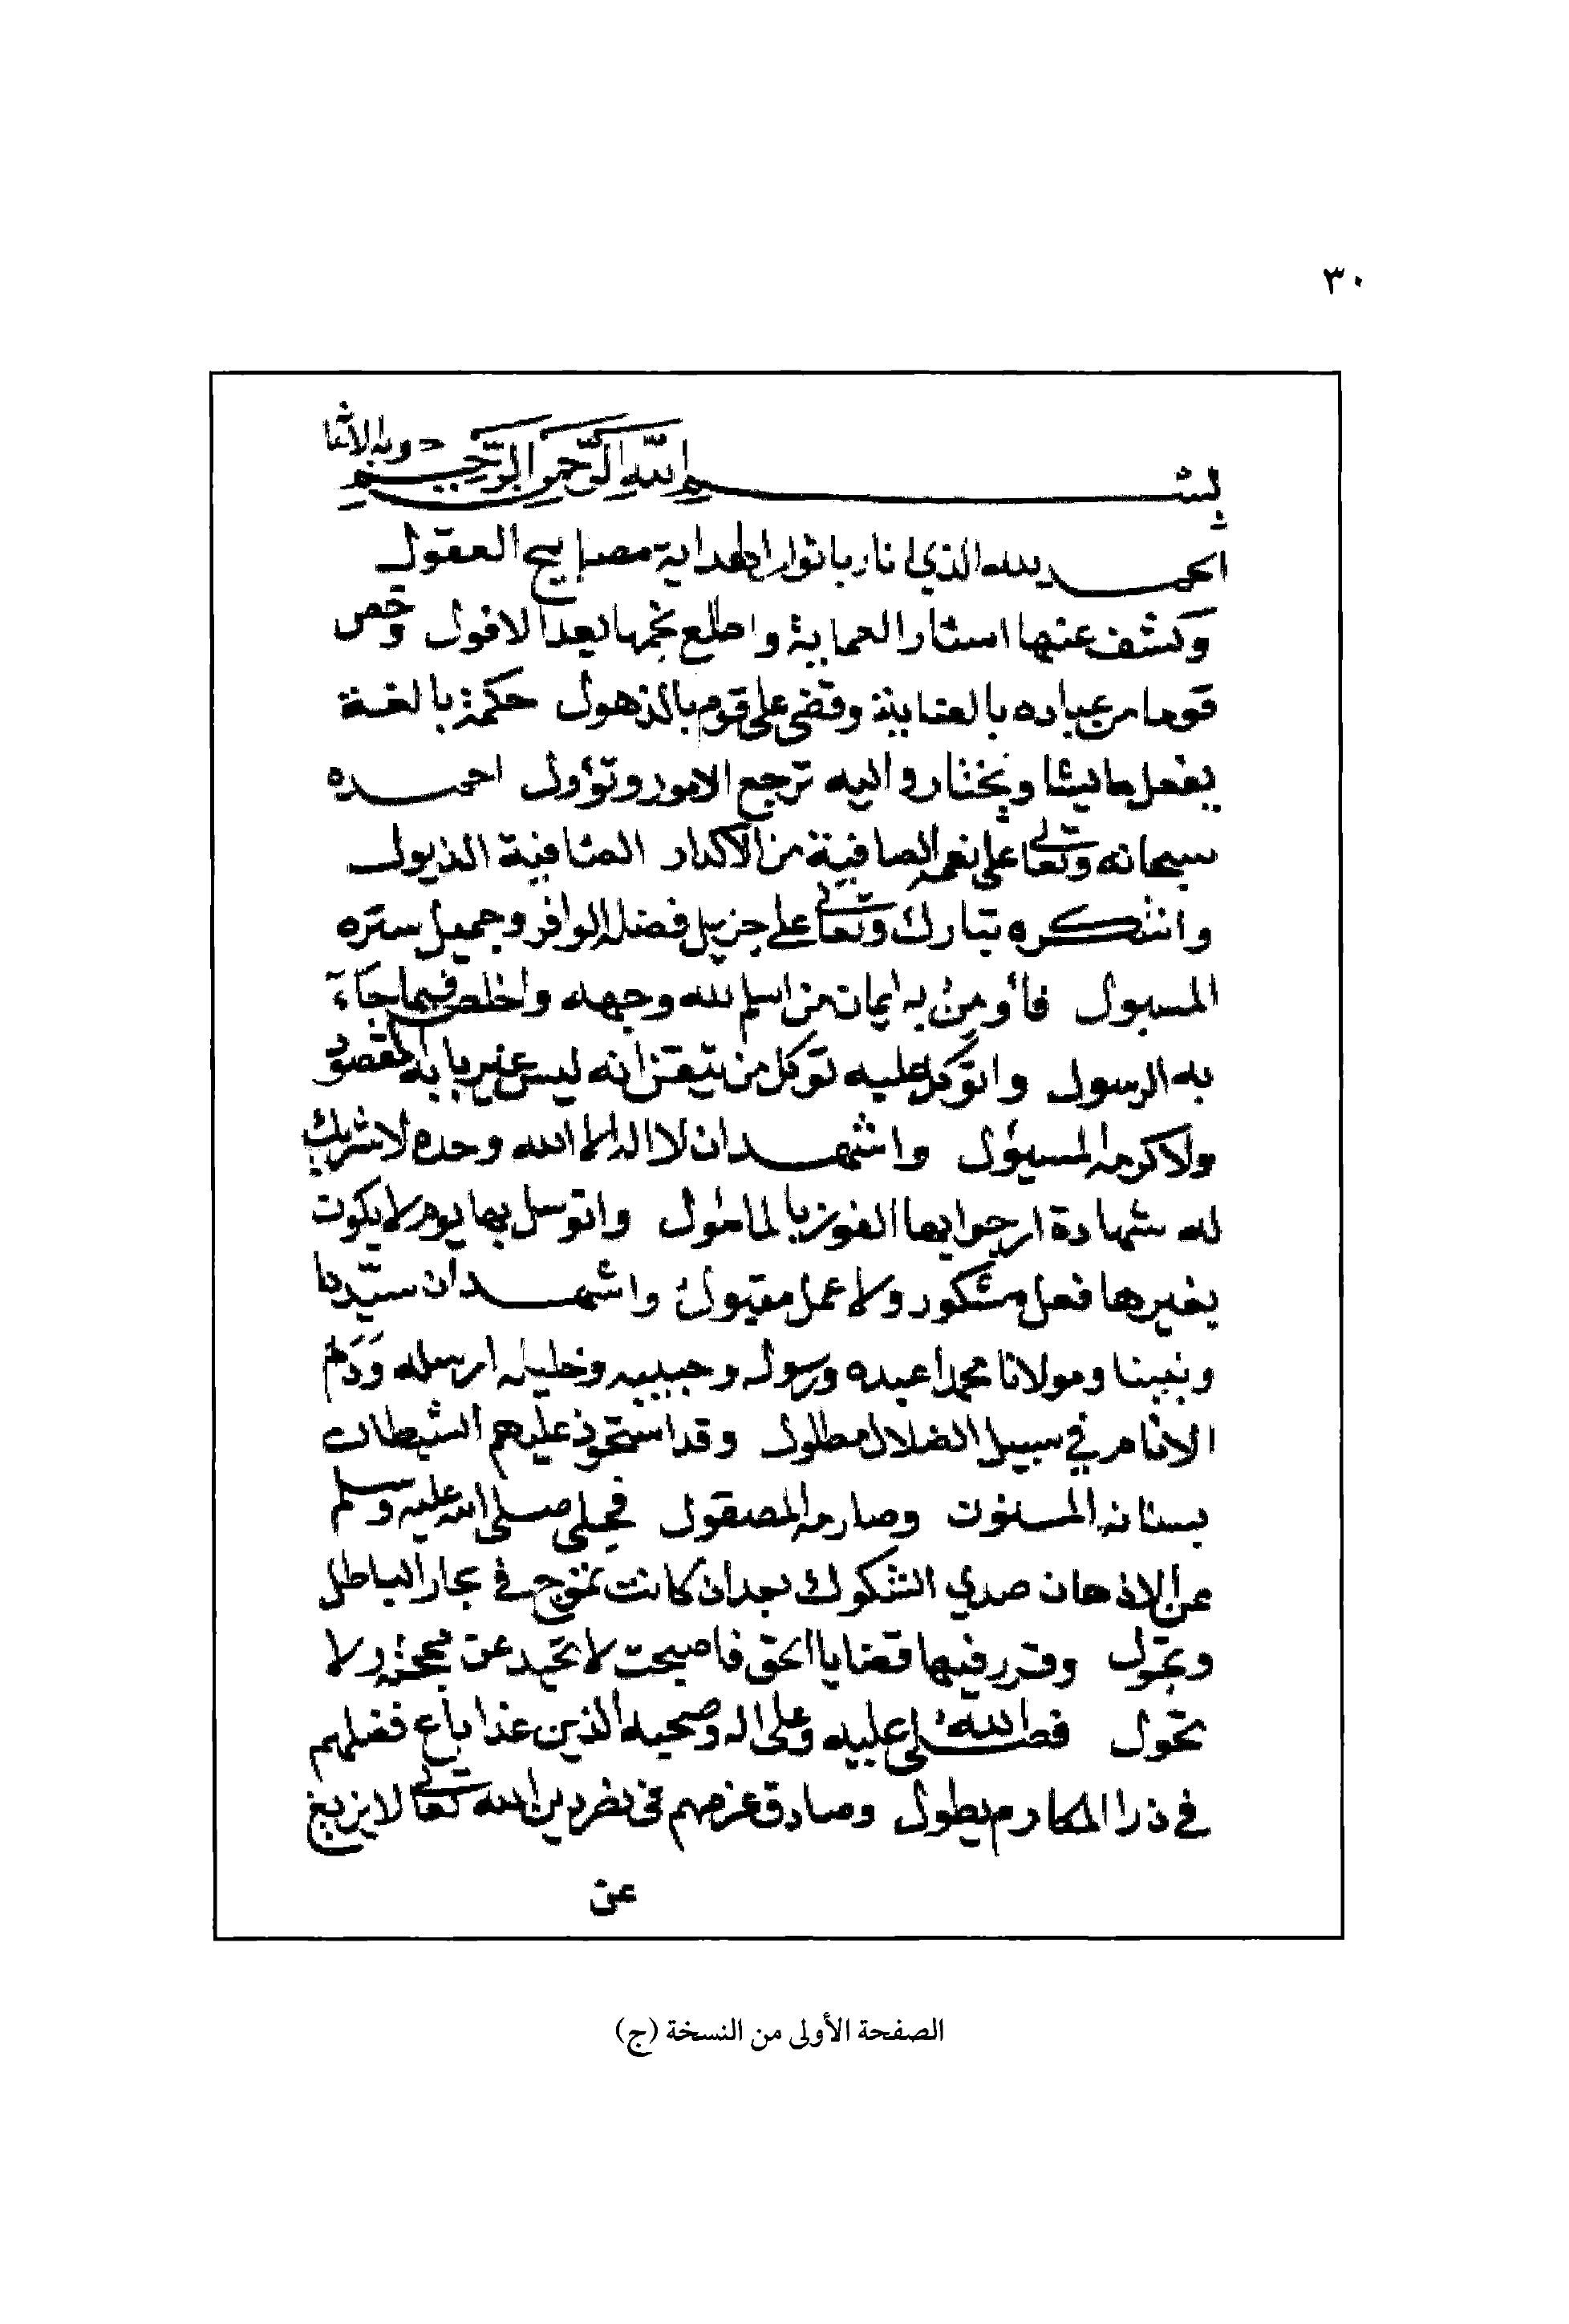 ٣٠
بسم الله الرحمن الرحيم
الحمد لله الذي انار بانوار الهداية مصابيح العقول
وكشف عنها استار العماية واطلع نجمها بعد الافول وخص
قوما من عباده بالعناية وقضى على قوم بالذهول حكمة بالغة
يفعل ما يشا ويختار واليه ترجع الامور وتؤول احمده
سبحانه وتعالى على نعمه الصافية من الاكدار الضافية الذيول
واشكره تبارك وتعالى على جزيل فضله الوافر وجميل ستره
المسبول فأومن به ايمان من اسلم لله وجهه واخلص فيما جاء
به الرسول واتوكل عليه توكل من تيقن انه ليس غير بابه المقصود
ولا كرمه المسيؤل واشهد ان لا اله الا الله وحده لا شريك
له شهادة ارجوا بها الفوز بالمامول واتوسل بها يوم لا يكون
بغيرها فعل مشكور ولا عمل مقبول واشهد ان سيّدنا
ونبينا ومولانا محمدا عبده ورسوله وحبيبه وخليله ارسله ودم
الانام في سبيل الضلال مطلول وقد استحوذ عليهم الشيطان
بسنانه المسنون وصارمه المصقول فجلى صلى الله عليه وسلم
عن الاذهان صدي الشكوك بعد ان كانت تموج في بحار الباطل
وتجول وقرر فيها قضايا الحق فاصبحت لا تحيد عن ولا
تحول فصلى الله عليه وعلى اله وصحبه الذين غدا باع فضلهم
في ذرا المكارم يطول وصادق عزمهم في نصر دين الله تعالى لا يزيغ
عن
الصفحة الأولى من النسخة (ج)